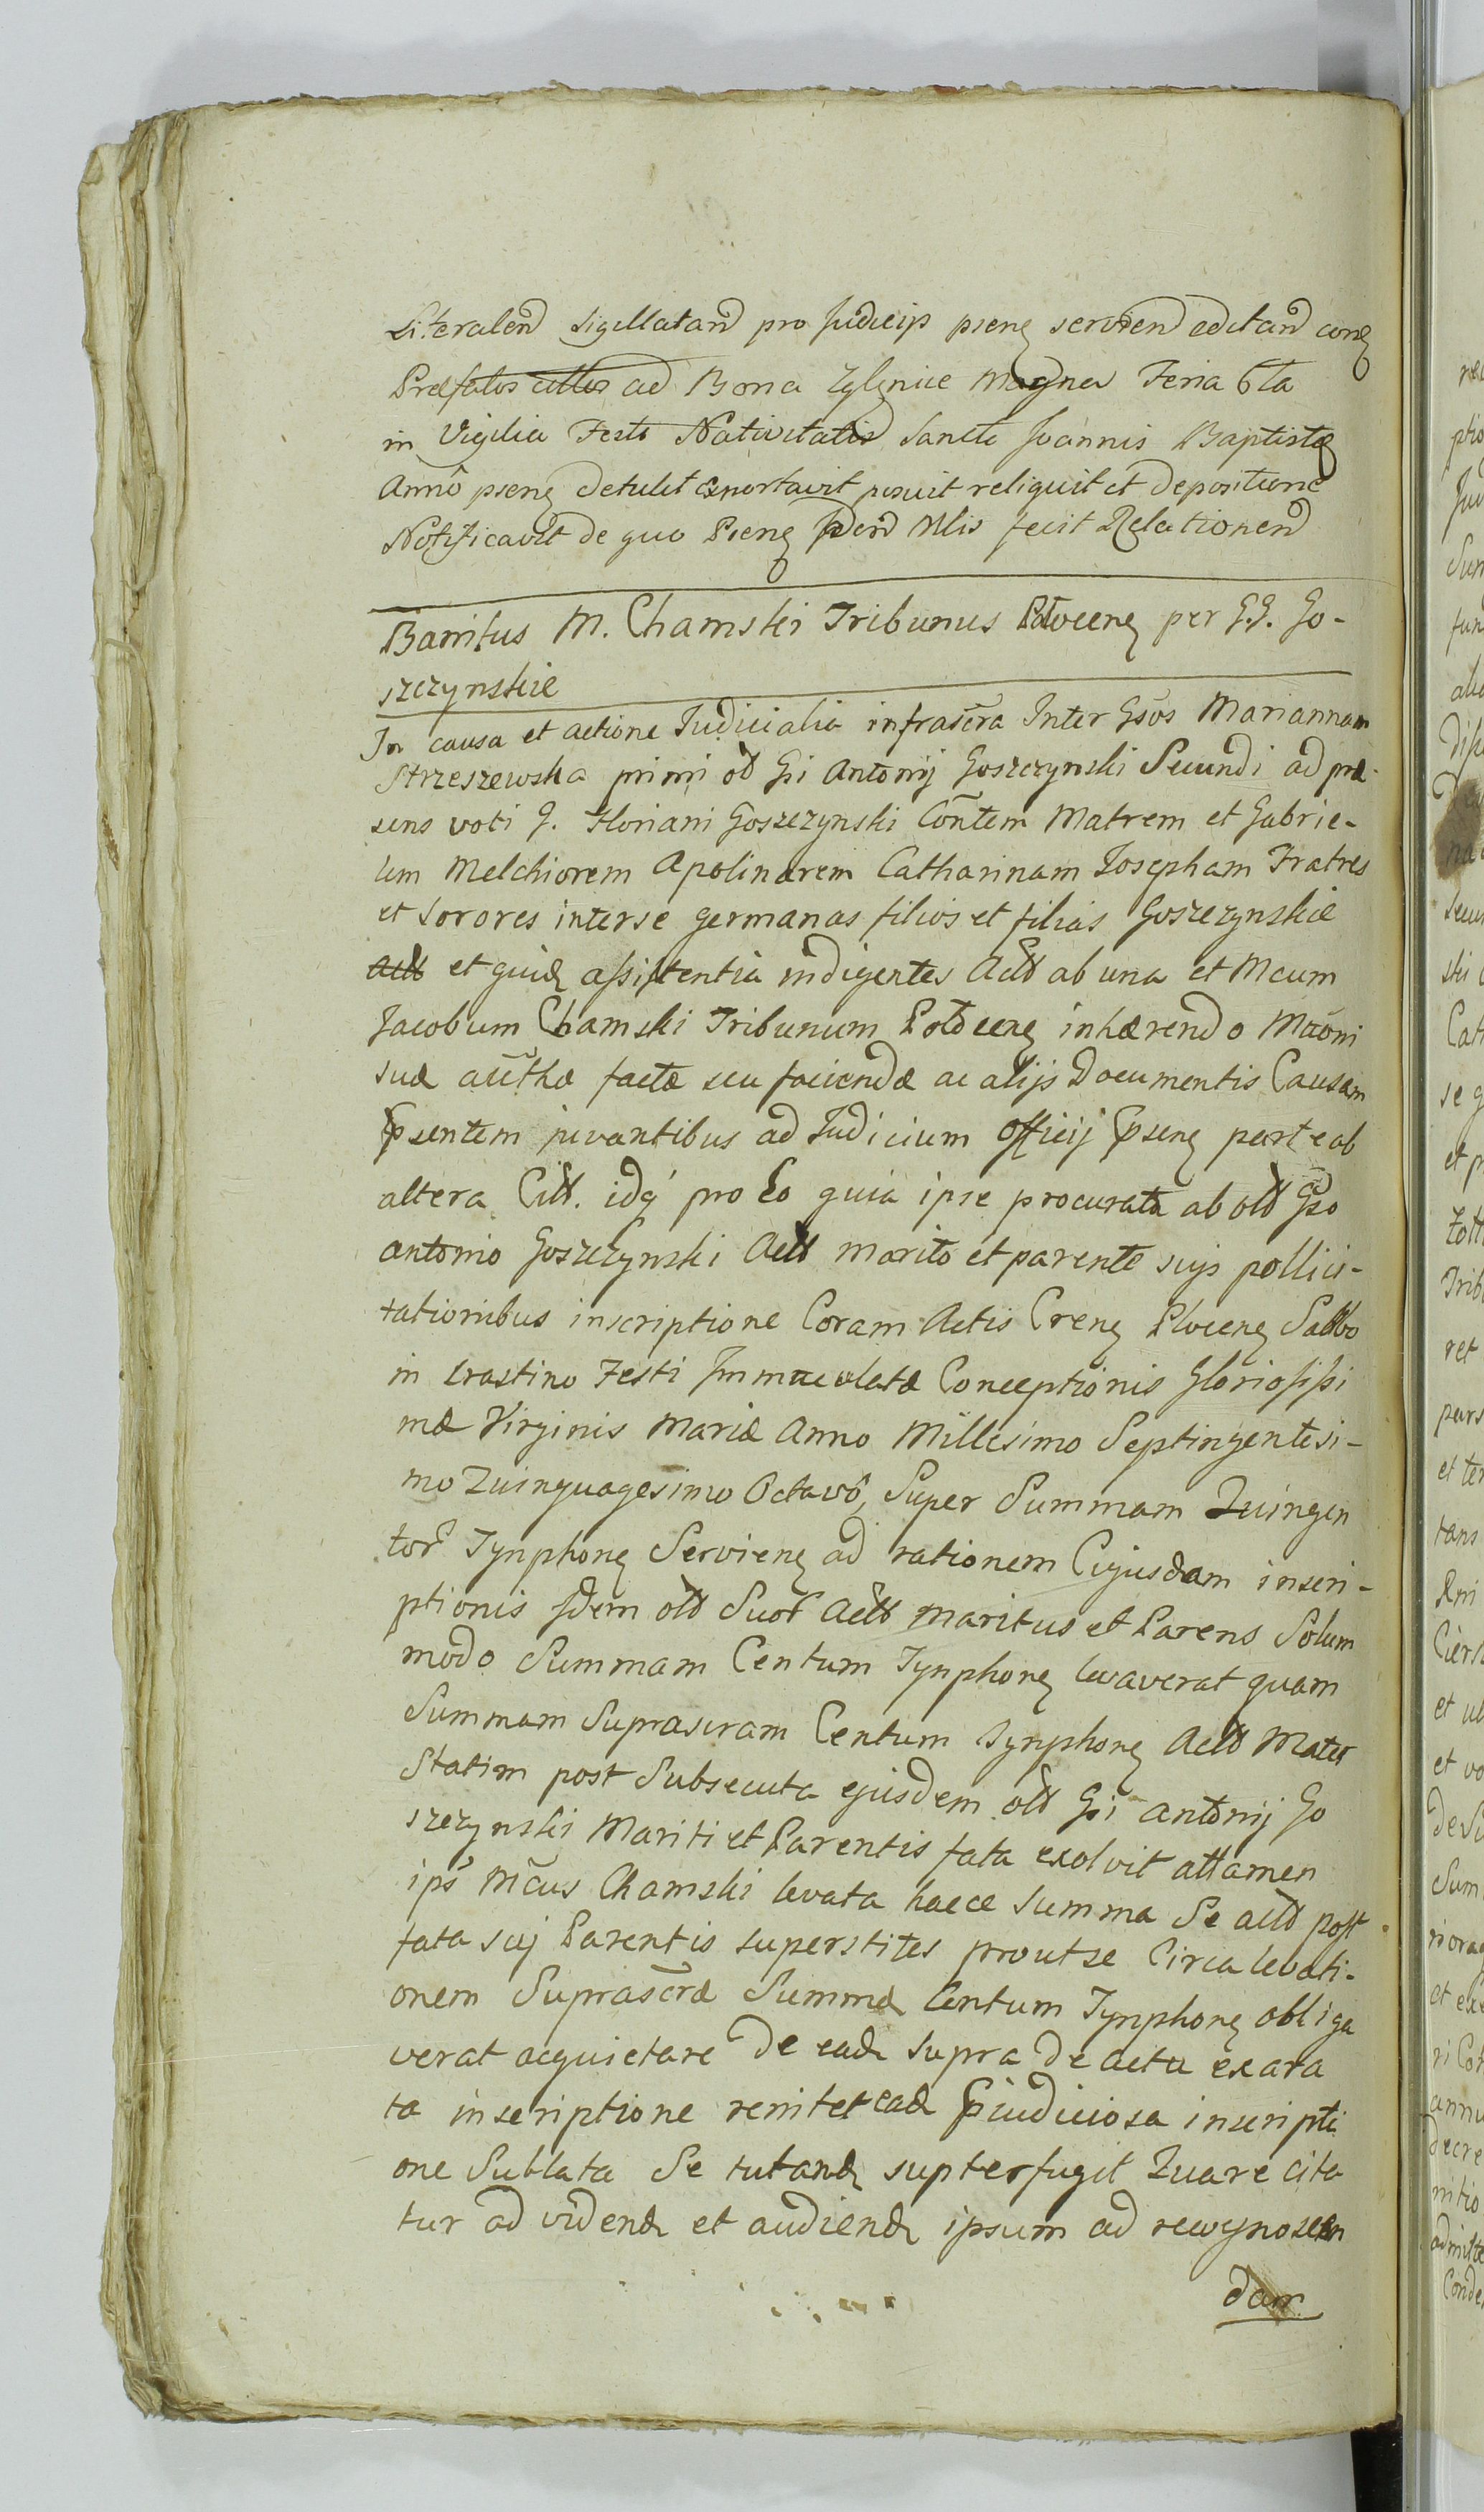 Literalem Sigillatam pro Judicijs psenę servien editam conę
Præfatos actus ad Bona Zglenice Magna Feria 6ta
in Vigilia Festi Nativitatis Sancti Joannis Baptistæ
Anno psenę detulit exportavit posuit reliquit et depositione
Notificavit de quo Psenę Idem Mlis fecit Relationem
Banitus M. Chamski Tribunus Plocenę per G.G. Go-
szczynskie
In causa et actione Judicialia infrascra Inter Gsos Mariannam
Strzeszewska primi old Gsi Antonij Goszczynski Secundi ad præ-
sens voti G. Floriani Goszczynski Contem Matrem et Gabrie-
lem Melchiorem Apolinarem Catharinam Josepham Fratres
et Sorores interse germanas filios et filias Goszczynskie
et quidę assistentia indigentes Actt ab una et Mcum
Jacobum Chamski Tribunum Plocenę inhærendo Mtioni
suæ authæ factæ seu faciendæ ac alijs Documentis Causam
psentem juvantibus ad Judicium Officij psenę parte ab
altera Citt. idq pro Eo quia ipse procurata ab old Gso
Antonio Goszczynski Actt marito et parente suis pollici-
tationibus inscriptione Coram Actis Crenę Plocenę Sabbo
in crastino Festi Immaculatæ Conceptionis Gloriosissi
mæ Virginis Mariæ Anno Millesimo Septingentesi-
mo Quinquagesimo Octavo, Super Summam Quingen
tor Tynphonę Servienę ad rationem Cujusdam inscri-
ptionis Idem old Suor Actt Maritus et Parens Solum
modo Summam Centum Tynphonę levaverat quam
Summam Suprascram Centum Tynphonę Actt Mater
Statim post Subsecuta ejusdem old Gsi Antonij Go
szczynski Mariti et Parentis fata exolvit attamen
ips Mcus Chamski levata haece Summa Se actt post
fata suj Parentis superstites proutse Circa levati-
onem Suprascræ Summæ Centum Tynphonę obliga
verat acquietare de eadę supra de actu exara
ta inscriptione renitet eadę pjudiciosa inscripti
one Sublata Se tutandę supterfugit Quare cita
tur ad videndę et audiendę ipsum ad recognoscen
dam